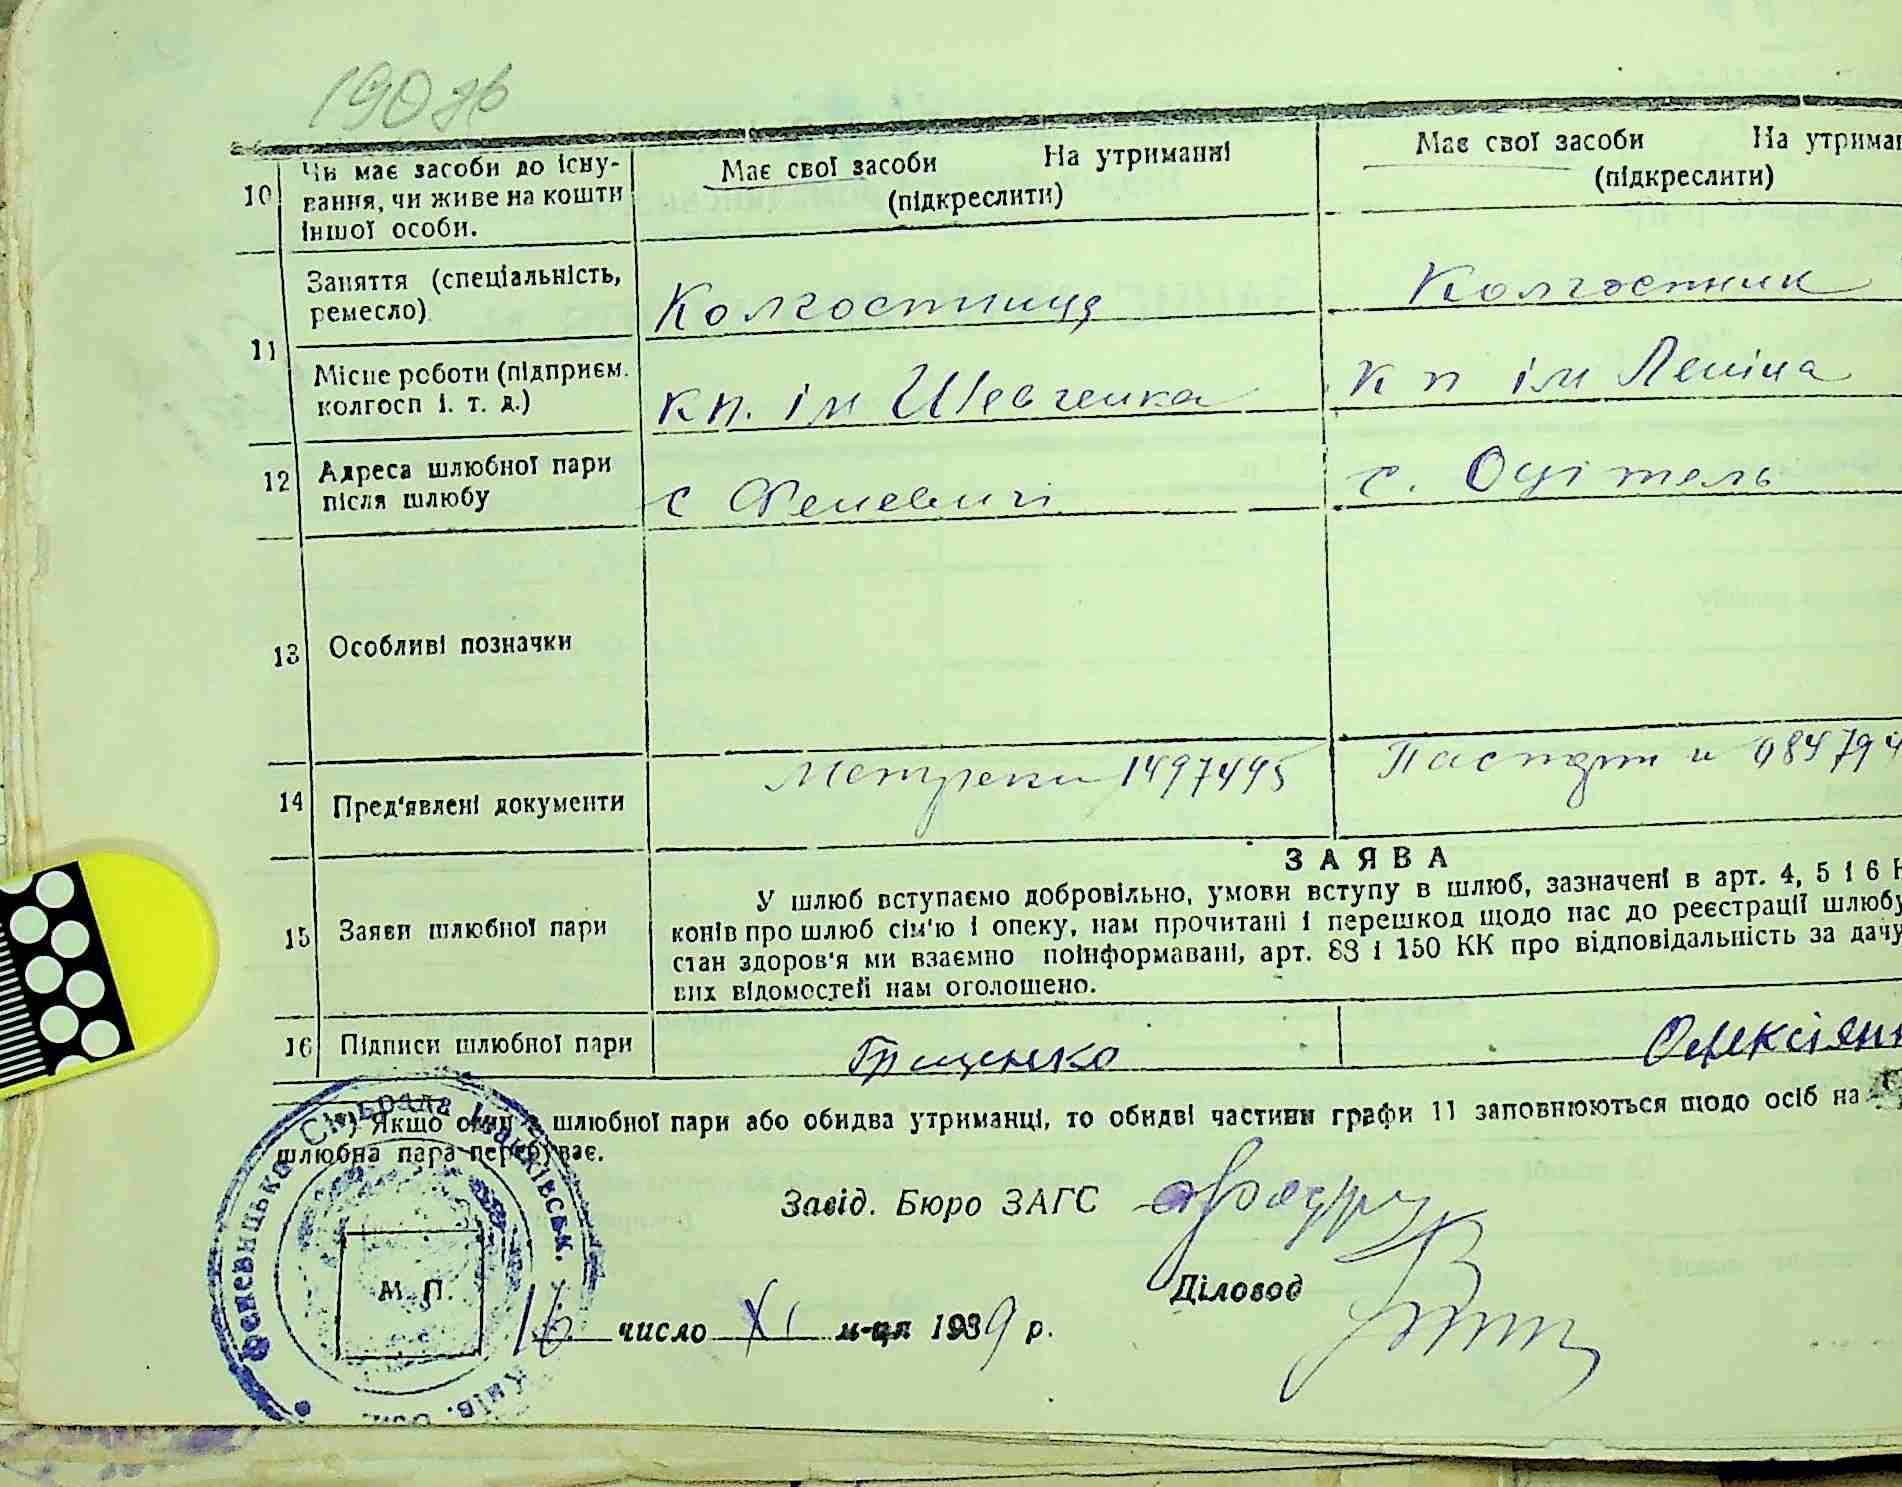 190 зв
10 Чи має засоби до існу- Має свої засоби На утриманні Має свої засоби На утриман
вання, чи живе на кошти (підкреслити) (підкреслити)
іншої особи.
11 Заняття (спеціальність, Колгоспниця Колгоспник
ремесло)
Місце роботи (підприєм. кп. ім Шевченка к п ім Леніна
колгосп і. т. д.)
12 Адреса шлюбної пари с Феневичі с. Оцітель
після шлюбу
13 Особливі позначки
14 Пред'явлені документи Метреки 1497495 Паспорт н 084794
15 Заяви шлюбної пари
ЗАЯВА
У шлюб вступаємо добровільно, умови вступу в шлюб, зазначені в арт. 4, 5 і 6
конів про шлюб сім'ю і опеку, нам прочитані і перешкод щодо нас до реєстрації шлюбу
стан здоров'я ми взаємно поінформавані, арт. 83 і 150 КК про відповідальність за дачу
вих відомостей нам оголошено.
16 Підписи шлюбної пари Грищенко Олексієн
*) Якщо один з шлюбної пари або обидва утриманці, то обидві частини графи 11 заповнюються щодо осіб на
шлюбна пара перебуває.
Феневицька Сільрада Іванківськ.
Київ. Обл.
М. П.
Завід. Бюро ЗАГС
Діловод
16 число XI м-ця 1939 р.